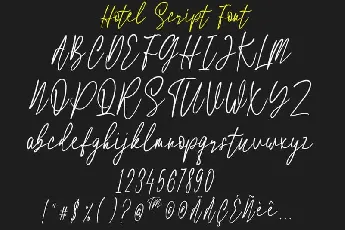 Hotel Script Font
ABCDEFGHIJKLM
NOPQRSTUVWXYZ
abcdefghijklmnopqrstuvwxyz
1234567890